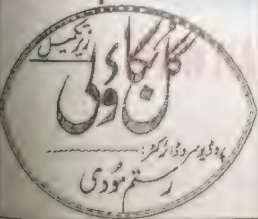 زیر تکمیل
گل بکاؤلی
پروڈیوسر و ڈائرکٹر:
رستم مودی